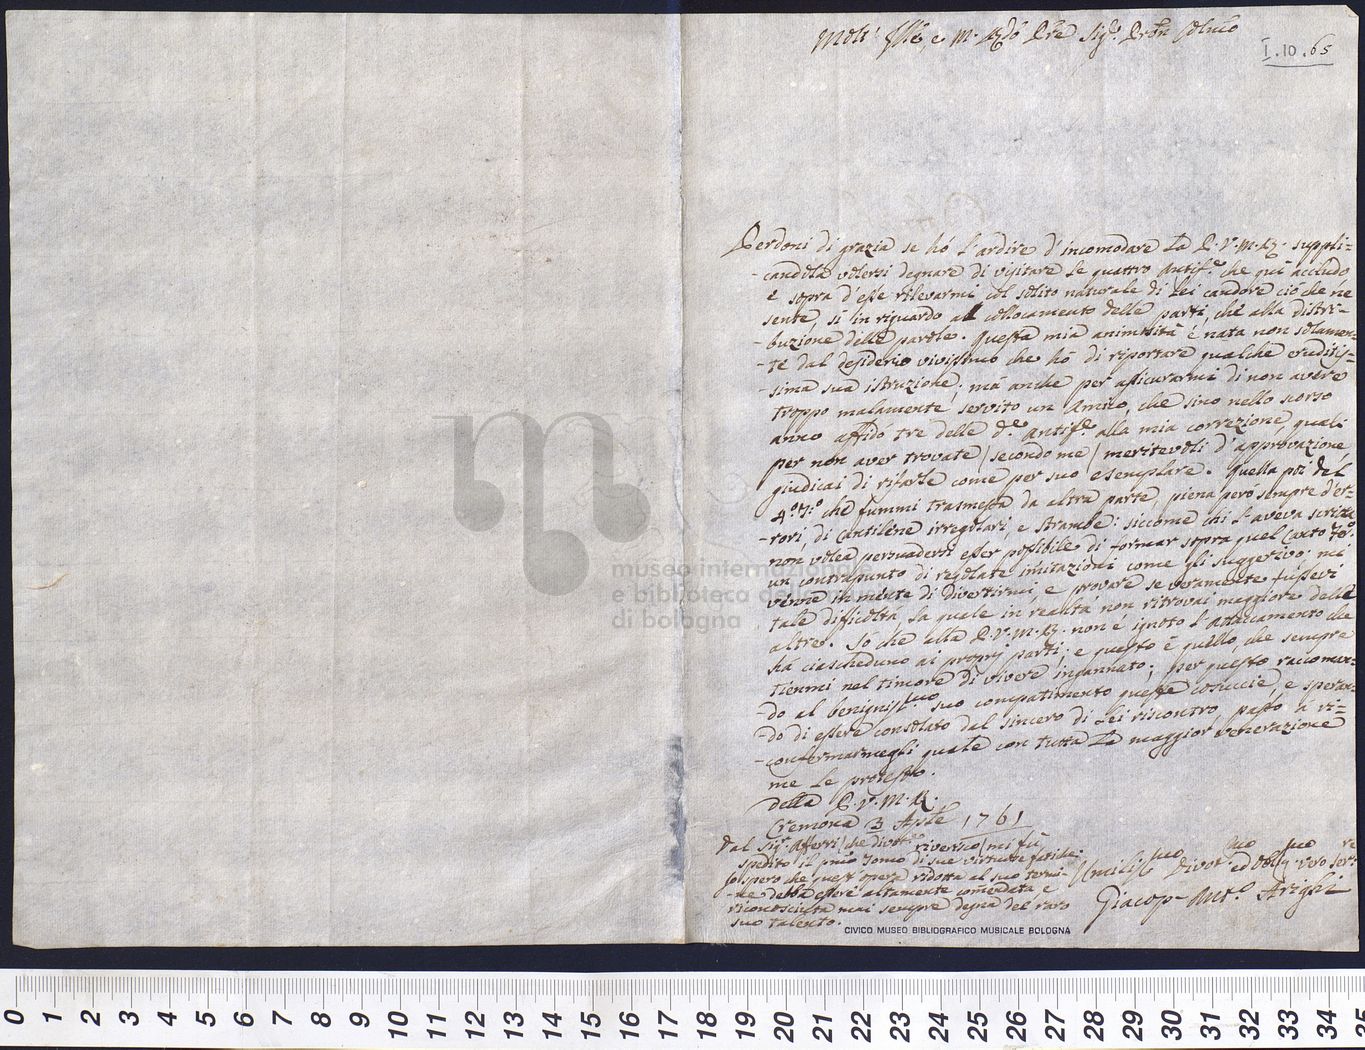 Molt' Illre, e M. Rdo Pre Sigr. Pron Colmo
I.10.65
Perdoni di grazia se hó l'ardire d'incomodare La P.V.M.R. suppli=
=candola volersi degnare di visitare le quattro Antife. che quí accludo
e sopra d'esse rilevarmi col solito naturale di Lei candore ciò che ne
sente, sí in riguardo al collocamento delle parti, che alla distri=
=buzione delle parole. Questa mia animosità é nata non solamen=
=te dal desiderio vivissimo che hó di riportare qualche eruditis=
=sima sua istruzione; má anche per assicurarmi di non avere
troppo malamente servito un Amico, che sino nello scorso
anno affidó tre delle de. Antife. alla mia correzione, quali
per non aver trovate /secondo me/ meritevoli d'approvazione
giudicai di rifarle come per suo esemplare. Quella poi del
4o. To. che fummi trasmessa da altra parte, piena peró sempre d'er=
=rori, di cantilene irregolari, e strambe: siccome chi l'aveva scritta
non volea persuadersi esser possibile di formar sopra quel Canto fo.
un contrapunto di regolate imitazioni come gli suggerivo: mi
venne in mente di divertirmi, e provare se veramente fussevi
tale difficoltá, la quale in realtá non ritrovai maggiore delle
altre. Só che alla P.V.M.R. non é ignoto l'attaccamento che
há ciascheduno ai proprj parti; e questo é quello, che sempre
tienmi nel timore di vivere ingannato; per questo racoman=
=do al benignissmo suo compatimento queste cosuccie, e speran=
=do di essere consolato dal sincero di Lei riscontro, passo a ri=
=confermarmegli quale con tutta la maggior venerazione
me le protesto.
della P.V.M.R.
Cremona 3 Aple 1761
Dal Sigr. Afferri /che divote. riverisco/ mi fú
spedito il pmo Tomo di sue virtuose fatiche.
Io spero che quest'opera ridotta al suo termi=
=ne debba essere altamente comendata e
riconosciuta mai sempre degna del raro
suo talento.
Umilissmo Divotmo ed Obligmo vero Serre
Giacop. Anto. Arighi
CIVICO MUSEO BIBLIOGRAFICO MUSICALE BOLOGNA
museo internazionale
e biblioteca della musica
di bologna
0 1 2 3 4 5 6 7 8 9 10 11 12 13 14 15 16 17 18 19 20 21 22 23 24 25 26 27 28 29 30 31 32 33 34 35